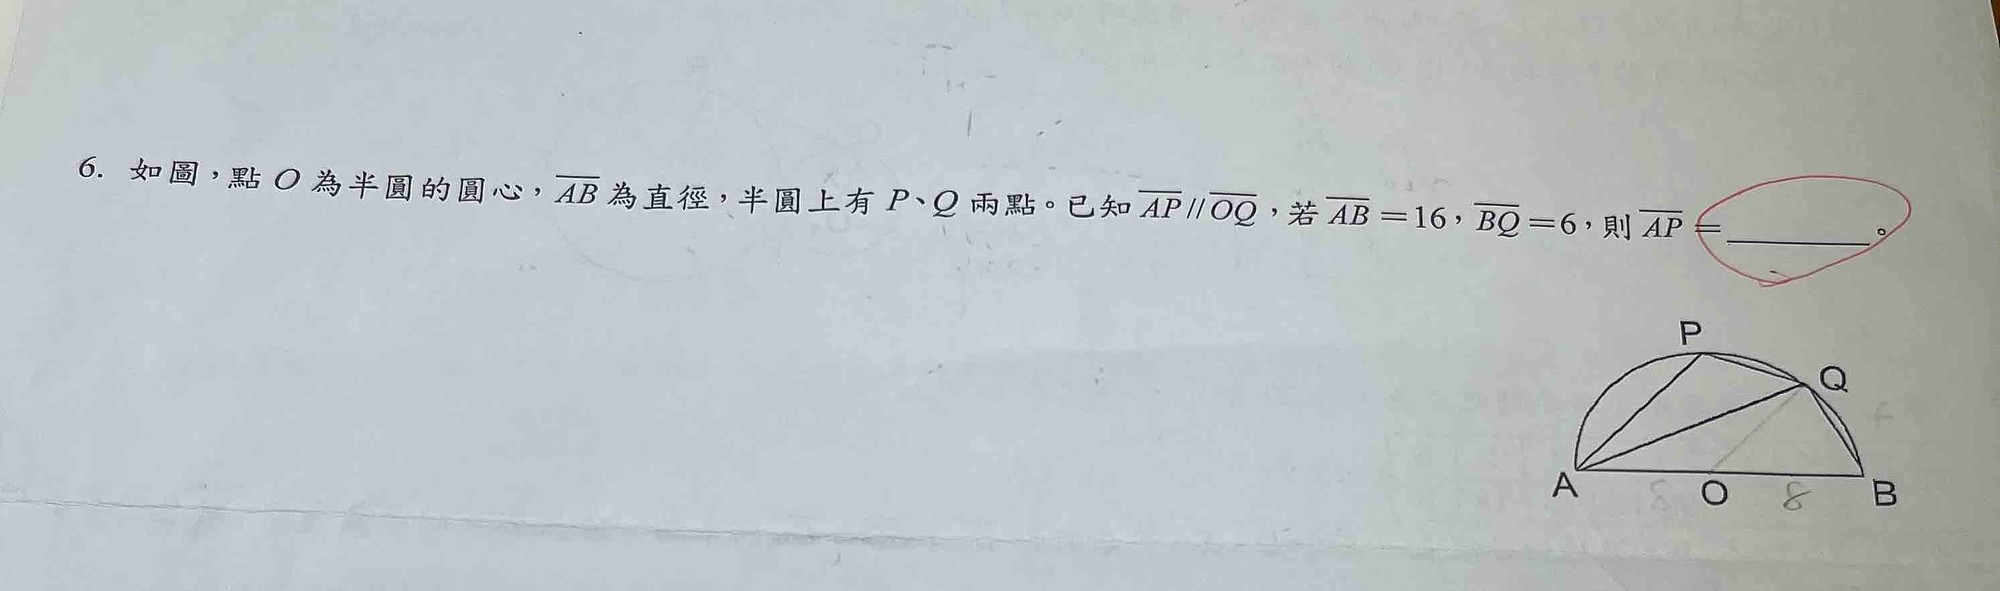 6. 如圖，點 O 為半圓的圓心，AB 為直徑，半圓上有 P、Q 兩點。已知 AP//OQ，若 AB＝16，BQ＝6，則 AP＝________。
P
Q
A
8
O
8
B